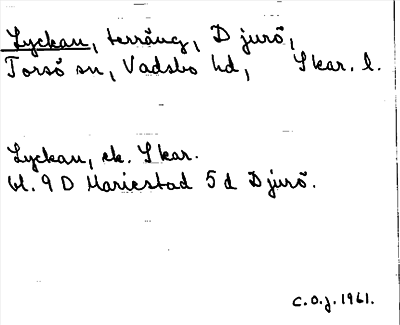 Lyckan, terräng, Djurö,
Torsö sn, Vadsbo hd, Skar. l.
Lyckan, ek. Skar.
bl. 9 D Mariestad 5 d Djurö.
C.O.J. 1961.